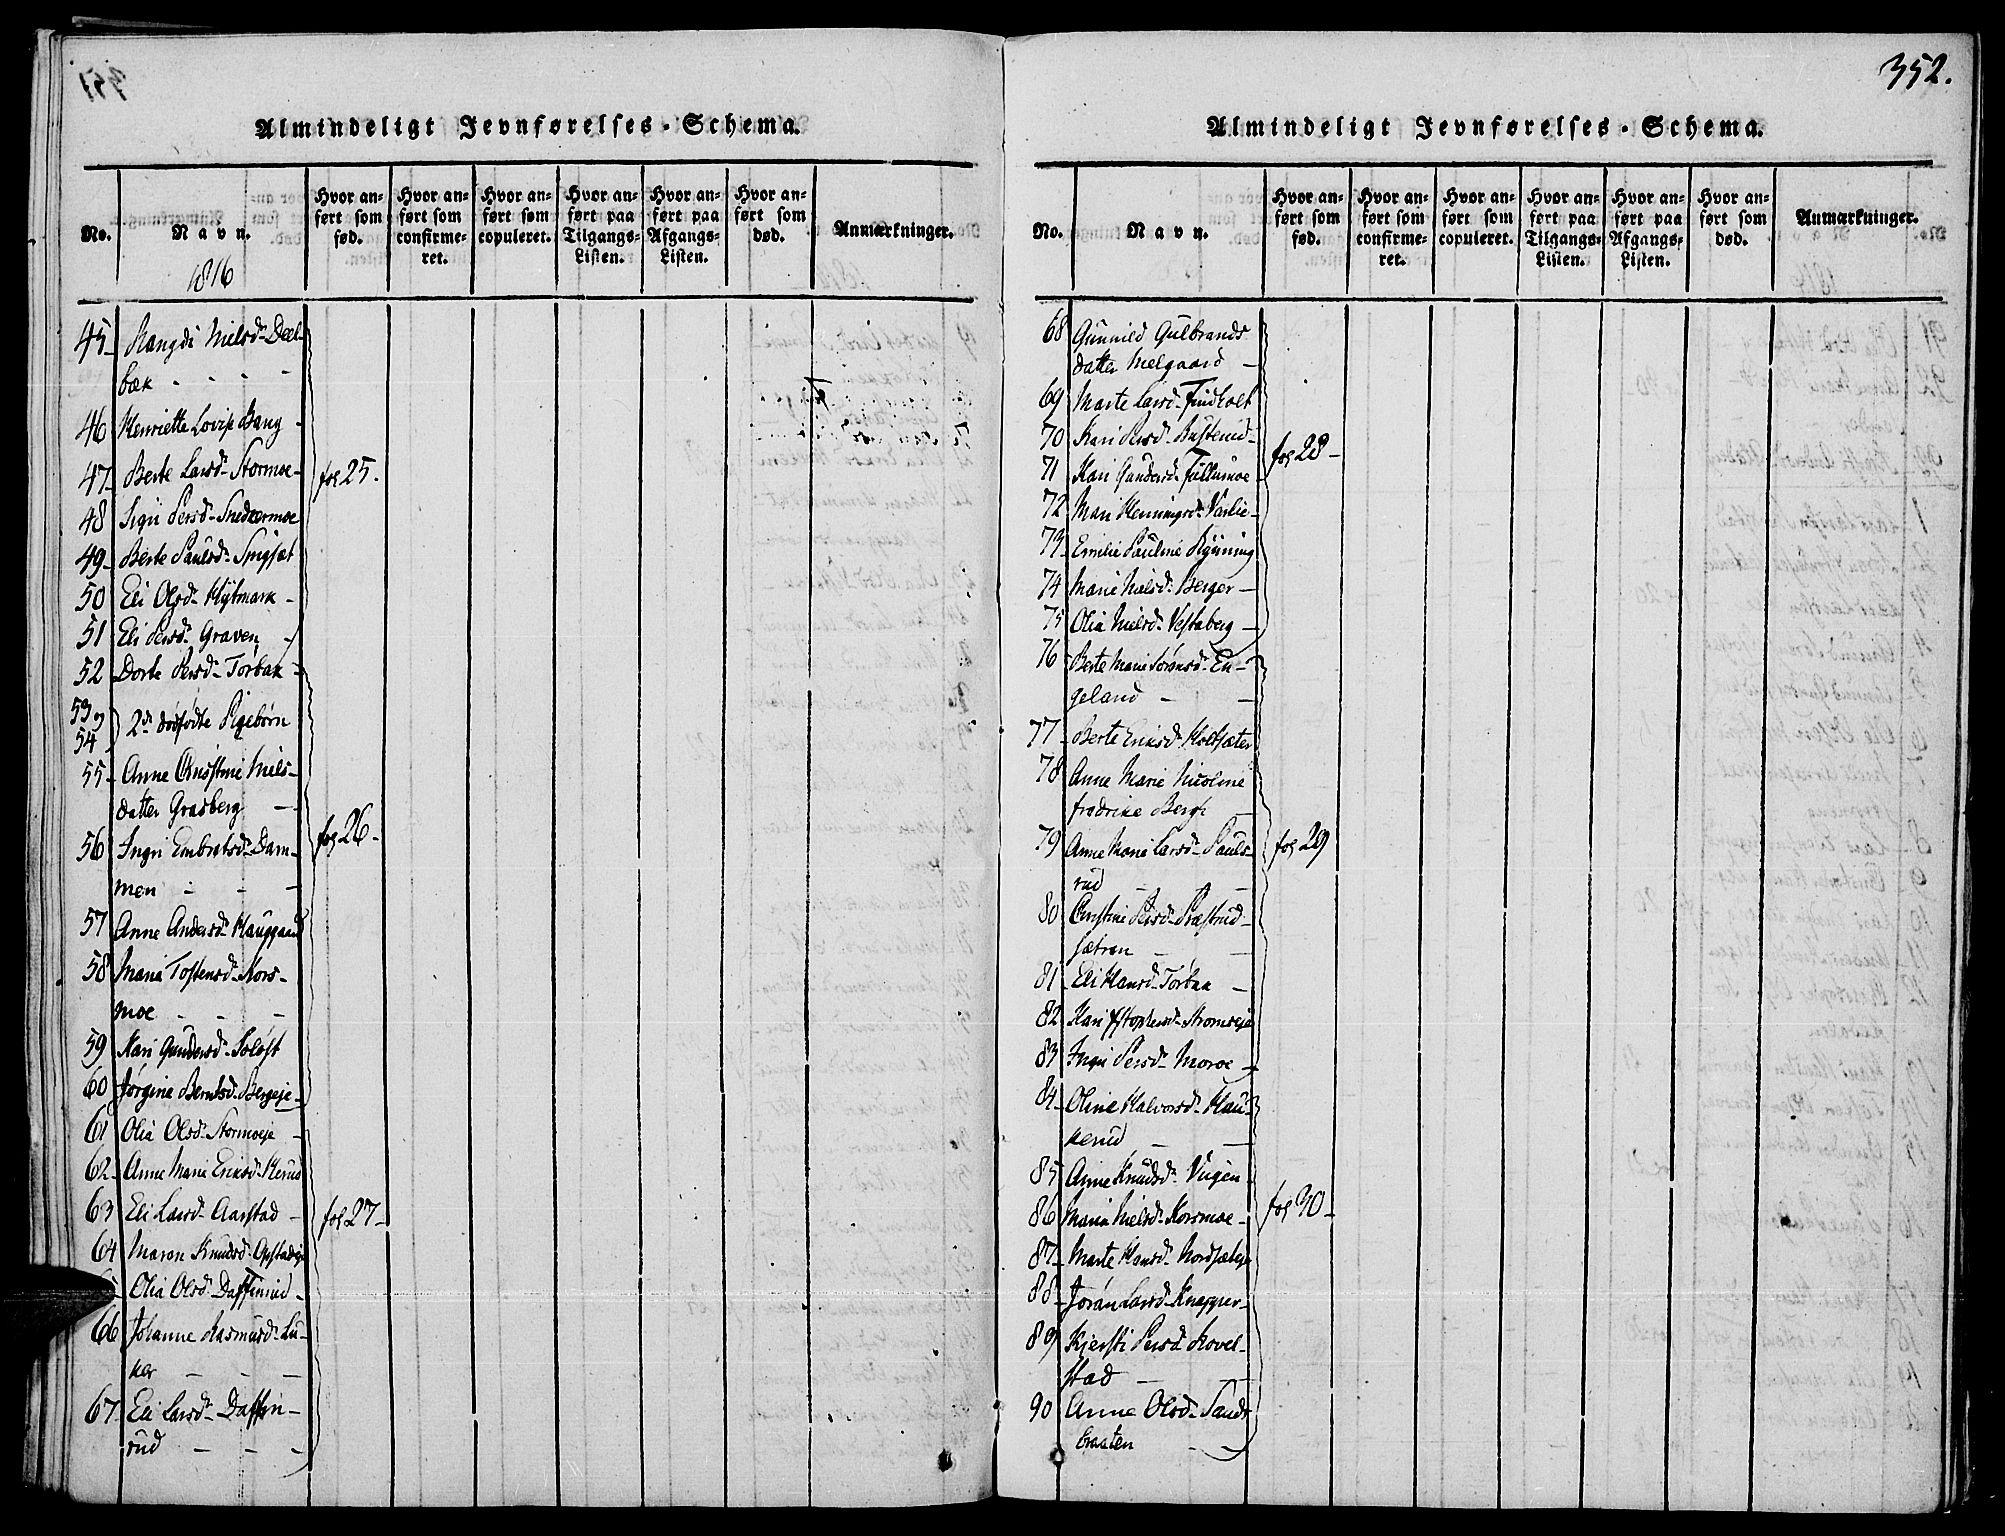 352.
Almindeligt Jevnførelses-Schema.
No.
Navn.
1816
Hvor anført som fød.
Hvor anført som confirmeret.
Hvor anført som copuleret.
Hvor anført paa Tilgangs-Listen.
Hvor anført paa Afgangs-Listen.
Hvor anført som død.
Anmærkninger.
45 Rangdi Nielsd. Dæl-
bæk - - - -
46 Henriette Lovise Bang -
47 Berte Larsd. Stormoe - fol 25.
48 Sigri Persd. Snedkermoe
49 Berte Paulsd.
50 Eli Olsd. Nytmark -
51 Eli Persd. Graven
52 Dorte Persd. Torbak -
53 og
54 2de dødfødte Pigebørn
55 Anne Christine Niels-
datter Grasberg -
fol 26-
56 Ingri Embretsd. Dam-
men - - -
57 Anne Andersd. Hauggaard
58 Maria Tostensd. Kors-
moe - - -
59 Kari Gundersd.
60 Jørgine Berntsd. Bergeje
61 Olia Olsd. Stormoeje -
62 Anne Marie Eriksd.
63 Eli Larsd. Aarstad - fol 27-
64 Maren Knudsd. Opstadeje
Olia Olsd. Daffinrud -
66 Johanne Rasmusd. Lu-
ker - - -
67 Eli Larsd. Daffin-
rud - - -
Almindeligt Jevnførelses-Schema.
No.
Navn.
Hvor anført som fød.
Hvor anført som confirmeret.
Hvor anført som copuleret.
Hvor anført paa Tilgangs-Listen.
Hvor anført paa Afgangs-Listen.
Hvor anført som død.
Anmærkninger.
68 Gunnild Gulbrands
datter Melgaard -
69 Marte Larsd. Findholt
70 Kari Persd.
fol 28-
71 Kari Gundersd. Fullumoe
72 Mari Henningsd. Varlie -
73 Emilie Pauline Rynning
74 Marie Nielsd. Berger -
75 Olia Nielsd. Vestaberg -
76 Berte Marie Sørensd. En-
geland - -
77 Berte Eriksd. Holtsæter
78 Anne Marie Nicoline
fredrike Bergh
79 Anne Marie Larsd. Pauls- fol 29
rud - -
80 Christine Persd. Præstrud-
sætren - -
81 Eli Hansd. Torbaa -
82 Kari Stormoeje
83 Ingri Persd. Moroe -
84 Oline Halvorsd. Hau-
kerud - -
85 Anne Knudsd. Viigen -
86 Maria Nielsd. Korsmoe - fol 30-
87 Marte Hansd. Nordsæteje
88 Jøran Larsd. Knapper-
89 Kjersti Persd. Hovel-
stad - -
90 Anne Olsd. Sand-
braaten -